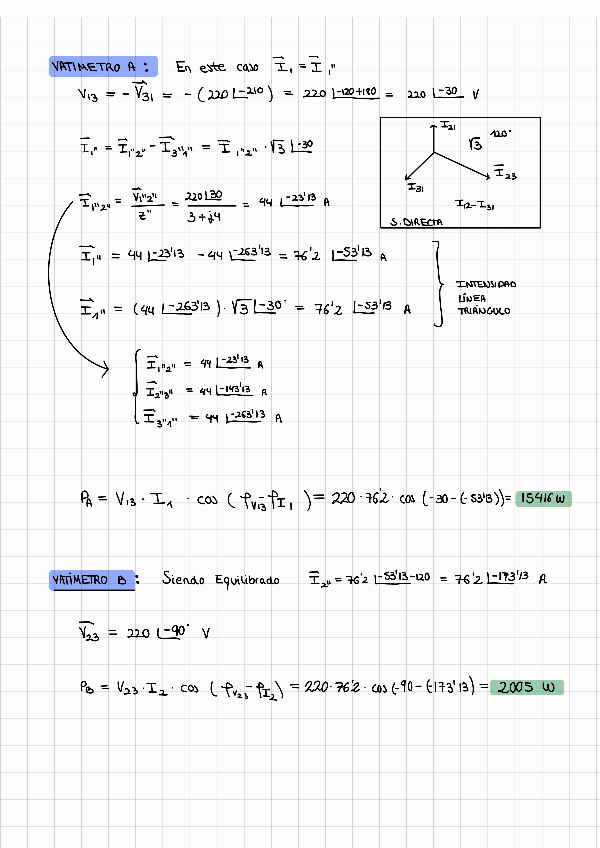 VATIMETRO A : En este caso I₁ = I₁''
V13 = -V31 = - (220 ∟-210) = 220 ∟-120+180 = 220 ∟-30 V
I₁'' = I₁''₂'' - I₃''₁'' = I₁''₂'' · √3 ∟-30
I21
√3 120°
I23
I31
I12-I31
S. DIRECTA
I₁''₂'' = V₁''₂'' / Z'' = 220∟30 / 3+j4 = 44 ∟-23'13 A
I₁'' = 44 ∟-23'13 - 44 ∟-263'13 = 76'2 ∟-53'13 A
I₁'' = (44 ∟-263'13) · √3 ∟-30° = 76'2 ∟-53'13 A
INTENSIDAD
LÍNEA
TRIÁNGULO
I₁''₂'' = 44 ∟-23'13 A
I₂''₃'' = 44 ∟-143'13 A
I₃''₁'' = 44 ∟-263'13 A
PA = V13 · I1 · cos (φV13 - φI1) = 220 · 76'2 · cos (-30-(-53'13)) = 15416 W
VATÍMETRO B : Siendo Equilibrado I₂'' = 76'2 ∟-53'13-120 = 76'2 ∟-173'13 A
V23 = 220 ∟-90° V
PB = V23 · I2 · cos (φV23 - φI2) = 220 · 76'2 · cos (-90-(-173'13) = 2005 W